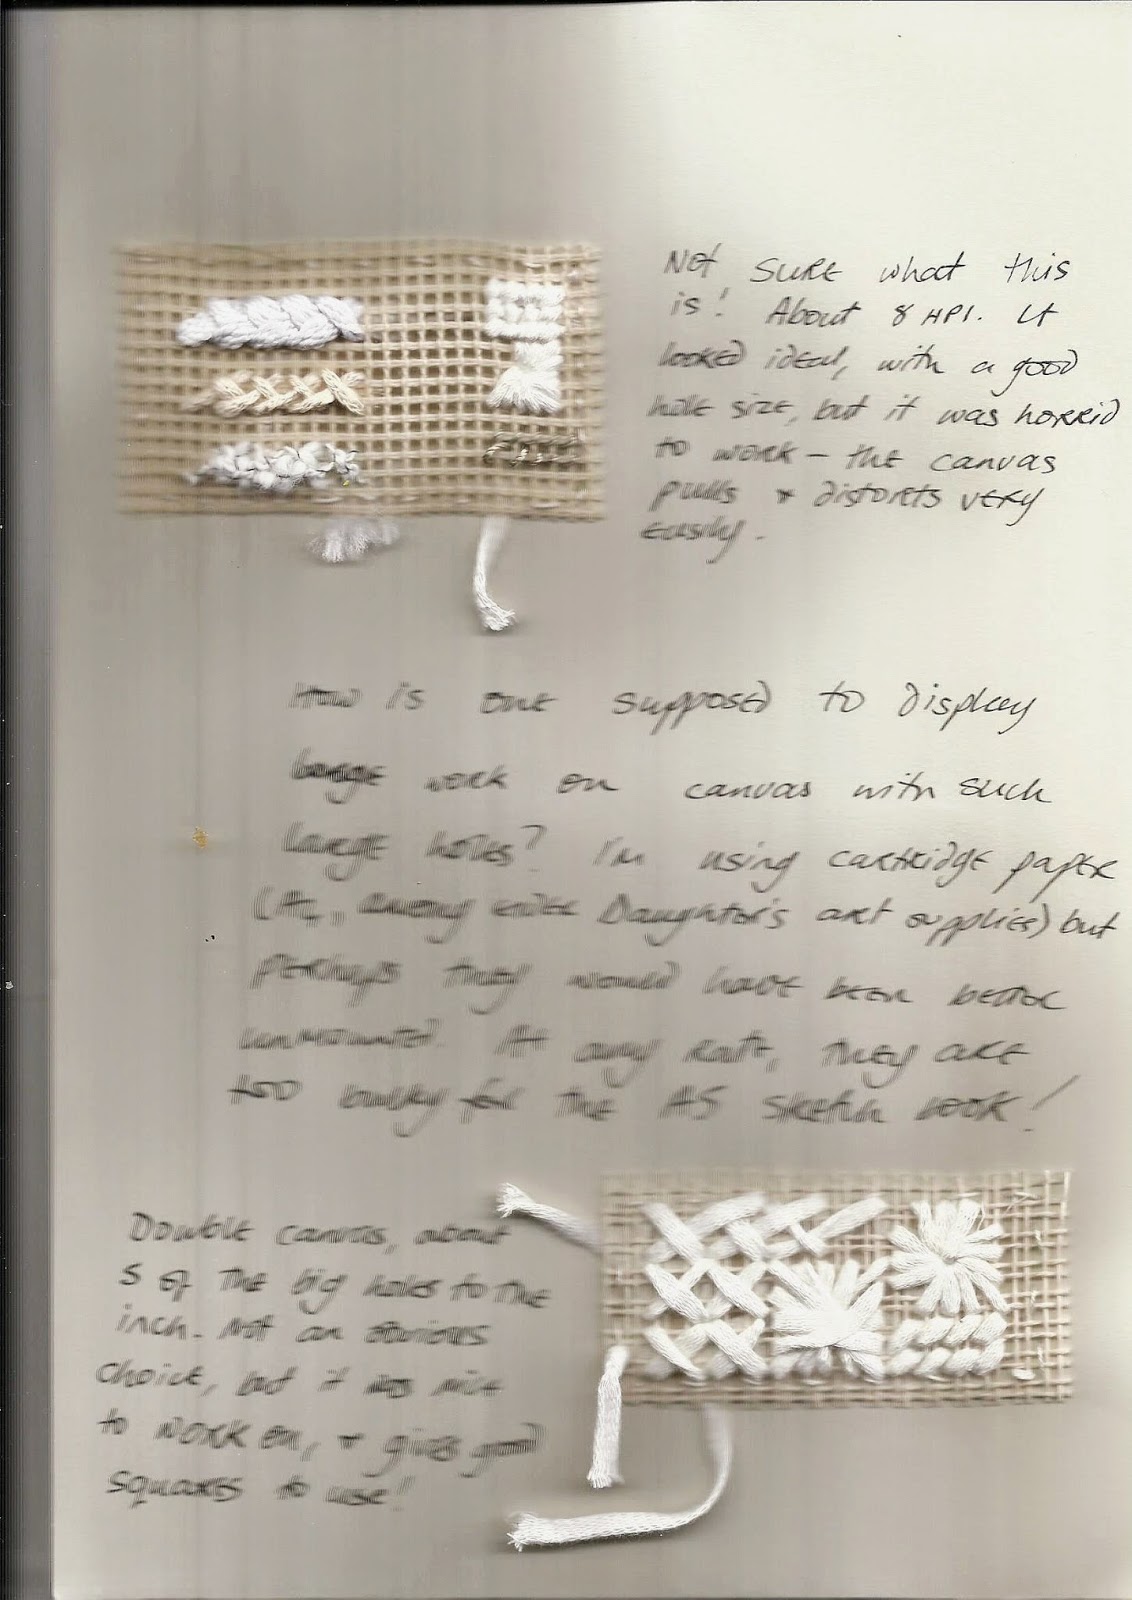 Not sure what this
is! About 8 HPI. It
looked ideal, with a good
hole size, but it was horrid
to work - the canvas
pulls & distorts very
easily.
How is one supposed to display
large work on canvas with such
large holes? I'm using cartridge paper
(A4, among Daughter's art supplies) but
perhaps they would have been better
unmounted. At any rate, they are
too bulky for the A5 sketch book!
Double canvas, about
5 of the big holes to the
inch. Not an obvious
choice, but it was nice
to work on, & gives good
squares to use!